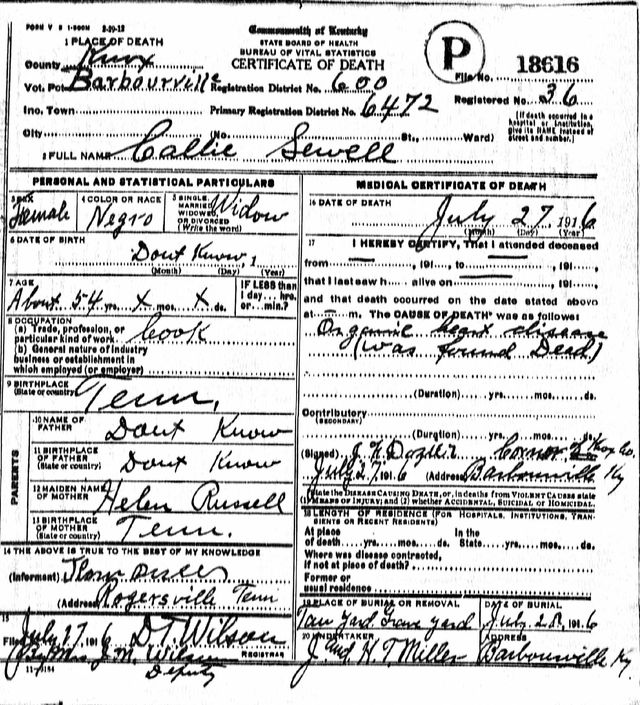 FORM V S 1-500M 2-19-13
1 PLACE OF DEATH
County Knox
Vot. Pct. Barbourville
Inc. Town
City
Commonwealth of Kentucky
STATE BOARD OF HEALTH
BUREAU OF VITAL STATISTICS
CERTIFICATE OF DEATH
P
File No. 18616
Registration District No. 600
Registered No. 36
Primary Registration District No. 6472
(No. St., Ward)
[If death occurred in a hospital or institution, give its NAME instead of street and number.]
2 FULL NAME Callie Sewell
PERSONAL AND STATISTICAL PARTICULARS
3 SEX Female
4 COLOR OR RACE Negro
5 SINGLE, MARRIED, WIDOWED, OR DIVORCED (Write the word) Widow
6 DATE OF BIRTH
Dont Know, 1
(Month) (Day) (Year)
7 AGE
About 54 yrs. x mos. x ds.
IF LESS than 1 day... hrs. or... min.?
8 OCCUPATION
(a) Trade, profession, or particular kind of work Cook
(b) General nature of industry
business or establishment in
which employed (or employer)
9 BIRTHPLACE
(State or country) Tenn.
PARENTS
10 NAME OF FATHER Dont Know
11 BIRTHPLACE OF FATHER (State or country) Dont Know
12 MAIDEN NAME OF MOTHER Helen Russell
13 BIRTHPLACE OF MOTHER (State or country) Tenn.
14 THE ABOVE IS TRUE TO THE BEST OF MY KNOWLEDGE
(Informant)
(Address) Rogersville Tenn
15
Filed July 27 1916 D.T. Wilson
REGISTRAR
By Mrs J.M. Wilson
Deputy
11-8184
MEDICAL CERTIFICATE OF DEATH
16 DATE OF DEATH
July 27, 1916
(Month) (Day) (Year)
17 I HEREBY CERTIFY, That I attended deceased
from, 191, to, 191,
that I last saw h alive on, 191,
and that death occurred on the date stated above
at m. The CAUSE OF DEATH* was as follows
Organic heart disease
(Was found Dead)
(Duration) yrs. mos. ds.
Contributory
(SECONDARY)
(Duration) yrs. mos. ds.
(Signed) Coroner Knox Co.
July 27, 1916 (Address) Barbourville Ky
*State the DISEASE CAUSING DEATH, or, in deaths from VIOLENT CAUSES state
(1) MEANS OF INJURY; and (2) whether ACCIDENTAL, SUICIDAL OR HOMICIDAL.
18 LENGTH OF RESIDENCE (FOR HOSPITALS, INSTITUTIONS, TRANSIENTS OR RECENT RESIDENTS)
At place In the
of death yrs. mos. ds. State yrs. mos. ds.
Where was disease contracted,
if not at place of death?
Former or
usual residence
19 PLACE OF BURIAL OR REMOVAL
Tan Yard Grave Yard
DATE OF BURIAL
July 28, 1916
20 UNDERTAKER
J. and H T Miller
ADDRESS
Barbourville Ky.